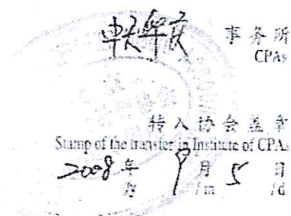 事务所
CPAs
转入协会盖章
Stamp of the transfer in Institute of CPAs
2008年 月5日
/y /m /d